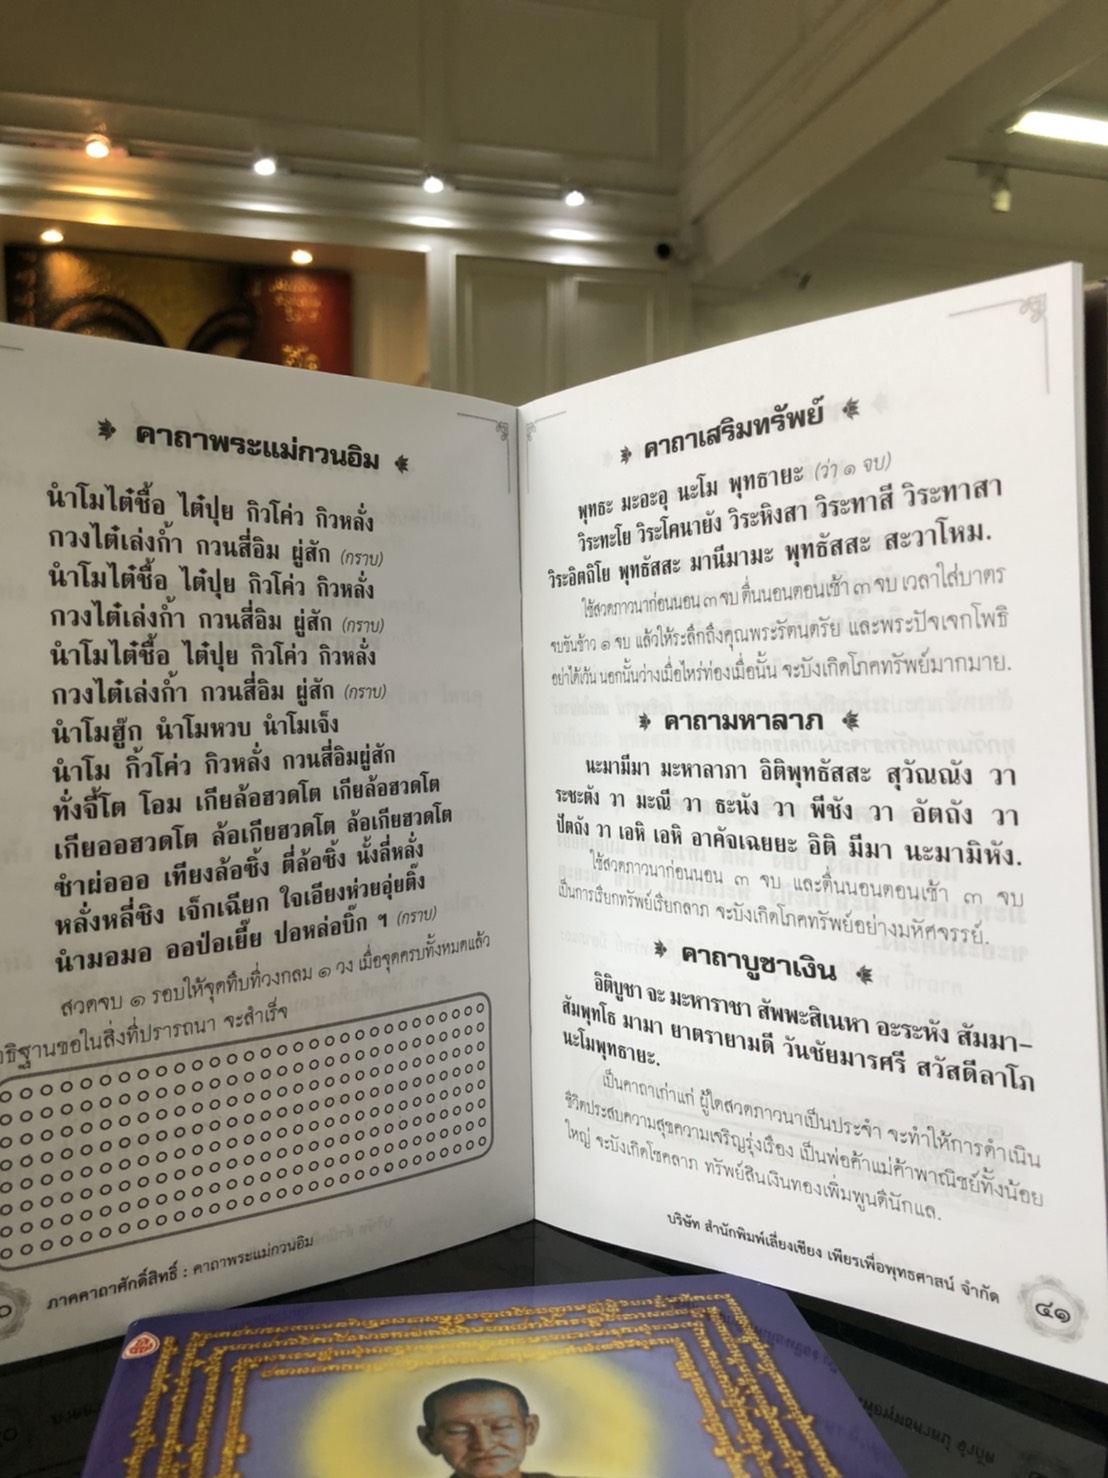 คาถาพระแม่กวนอิม
นำโมไต๋ชื้อ ไต๋ปุย กิวโค่ว กิวหลั่ง
กวงไต๋เล่งก้ำ กวนสี่อิม ผู่สัก (กราบ)
นำโมไต๋ชื้อ ไต๋ปุย กิวโค่ว กิวหลั่ง
กวงไต๋เล่งก้ำ กวนสี่อิม ผู่สัก (กราบ)
นำโมไต๋ชื้อ ไต๋ปุย กิวโค่ว กิวหลั่ง
กวงไต๋เล่งก้ำ กวนสี่อิม ผู่สัก (กราบ)
นำโมฮู๊ก นำโมหวบ นำโมเจ็ง
นำโม กิ้วโค่ว กิวหลั่ง กวนสี่อิมผู่สัก
ทั่งจี้โต โอม เกียล้อฮวดโต เกียล้อฮวดโต
เกียออฮวดโต ล้อเกียฮวดโต ล้อเกียฮวดโต
ซำผ่อออ เทียงล้อซิ้ง ตี่ล้อซิ้ง นั้งลี่หลั่ง
หลั่งหลี่ซิง เจ็กเฉียก ใจเอียงห่วยอุ่ยติ๊ง
นำมอมอ ออป่อเยี๊ย ปอหล่อบิ๊ก ฯ (กราบ)
สวดจบ ๑ รอบให้จุดทึบที่วงกลม ๑ วง เมื่อจุดครบทั้งหมดแล้ว
อธิฐานขอในสิ่งที่ปรารถนา จะสำเร็จ
ภาคคาถาศักดิ์สิทธิ์ : คาถาพระแม่กวนอิม
คาถาเสริมทรัพย์
พุทธะ มะอะอุ นะโม พุทธายะ (ว่า ๑ จบ)
วิระทะโย วิระโคนายัง วิระหิงสา วิระทาสี วิระทาสา
วิระอิตถิโย พุทธัสสะ มานีมามะ พุทธัสสะ สะวาโหม.
ใช้สวดภาวนาก่อนนอน ๓ จบ ตื่นนอนตอนเช้า ๓ จบ เวลาใส่บาตร
จบขันข้าว ๑ จบ แล้วให้ระลึกถึงคุณพระรัตนตรัย และพระปัจเจกโพธิ
อย่าได้เว้น นอกนั้นว่างเมื่อไหร่ท่องเมื่อนั้น จะบังเกิดโภคทรัพย์มากมาย.
คาถามหาลาภ
นะมามีมา มะหาลาภา อิติพุทธัสสะ สุวัณณัง วา
ระชะตัง วา มะณี วา ธะนัง วา พีชัง วา อัตถัง วา
ปัตถัง วา เอหิ เอหิ อาคัจเฉยยะ อิติ มีมา นะมามิหัง.
ใช้สวดภาวนาก่อนนอน ๓ จบ และตื่นนอนตอนเช้า ๓ จบ
เป็นการเรียกทรัพย์เรียกลาภ จะบังเกิดโภคทรัพย์อย่างมหัศจรรย์.
คาถาบูชาเงิน
อิติบูชา จะ มะหาราชา สัพพะสิเนหา อะระหัง สัมมา-
สัมพุทโธ มามา ยาตรายามดี วันชัยมารศรี สวัสดีลาโภ
นะโมพุทธายะ.
เป็นคาถาเก่าแก่ ผู้ใดสวดภาวนาเป็นประจำ จะทำให้การดำเนิน
ชีวิตประสบความสุขความเจริญรุ่งเรือง เป็นพ่อค้าแม่ค้าพาณิชย์ทั้งน้อย
ใหญ่ จะบังเกิดโชคลาภ ทรัพย์สินเงินทองเพิ่มพูนดีนักแล.
บริษัท สำนักพิมพ์เลี่ยงเชียง เพียรเพื่อพุทธศาสน์ จำกัด
๔๑